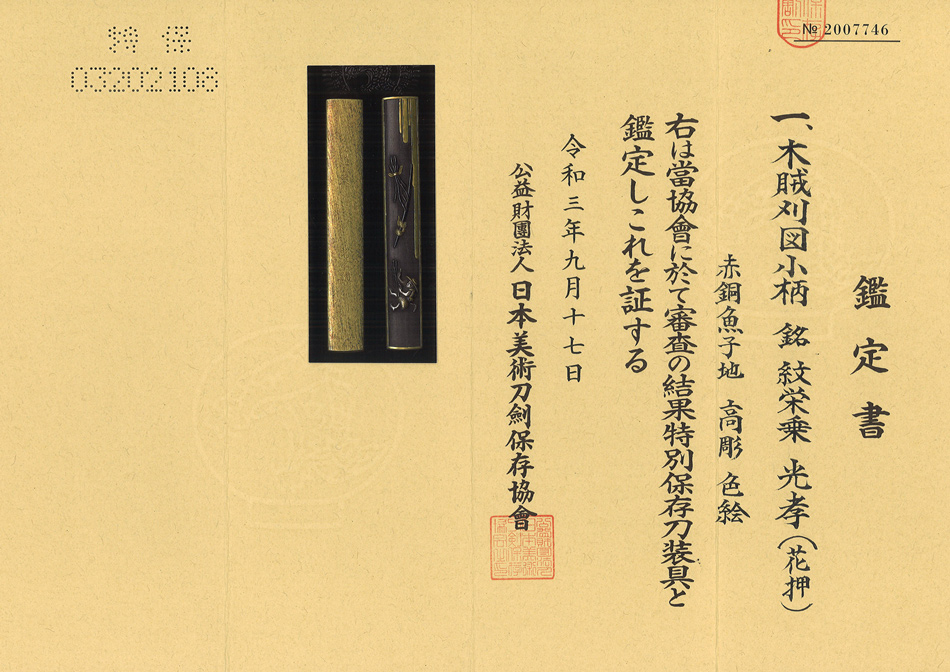 鑑定書
一、木賊刈図小柄 銘 紋栄乗 光孝(花押)
赤銅魚子地 高彫 色絵
右は當協會に於て審査の結果特別保存刀装具と
鑑定しこれを証する
令和三年九月十七日
公益財團法人日本美術刀劍保存協會
№ 2007746
特 保
03202108